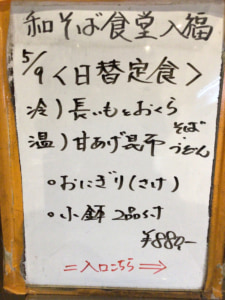 和そば食堂入福
5/9<日替定食>
冷)長いもとおくら
温)甘あげ昆布
そば・うどん
○おにぎり(さけ)
○小鉢 2品付
¥880-
=入口こちら⇒